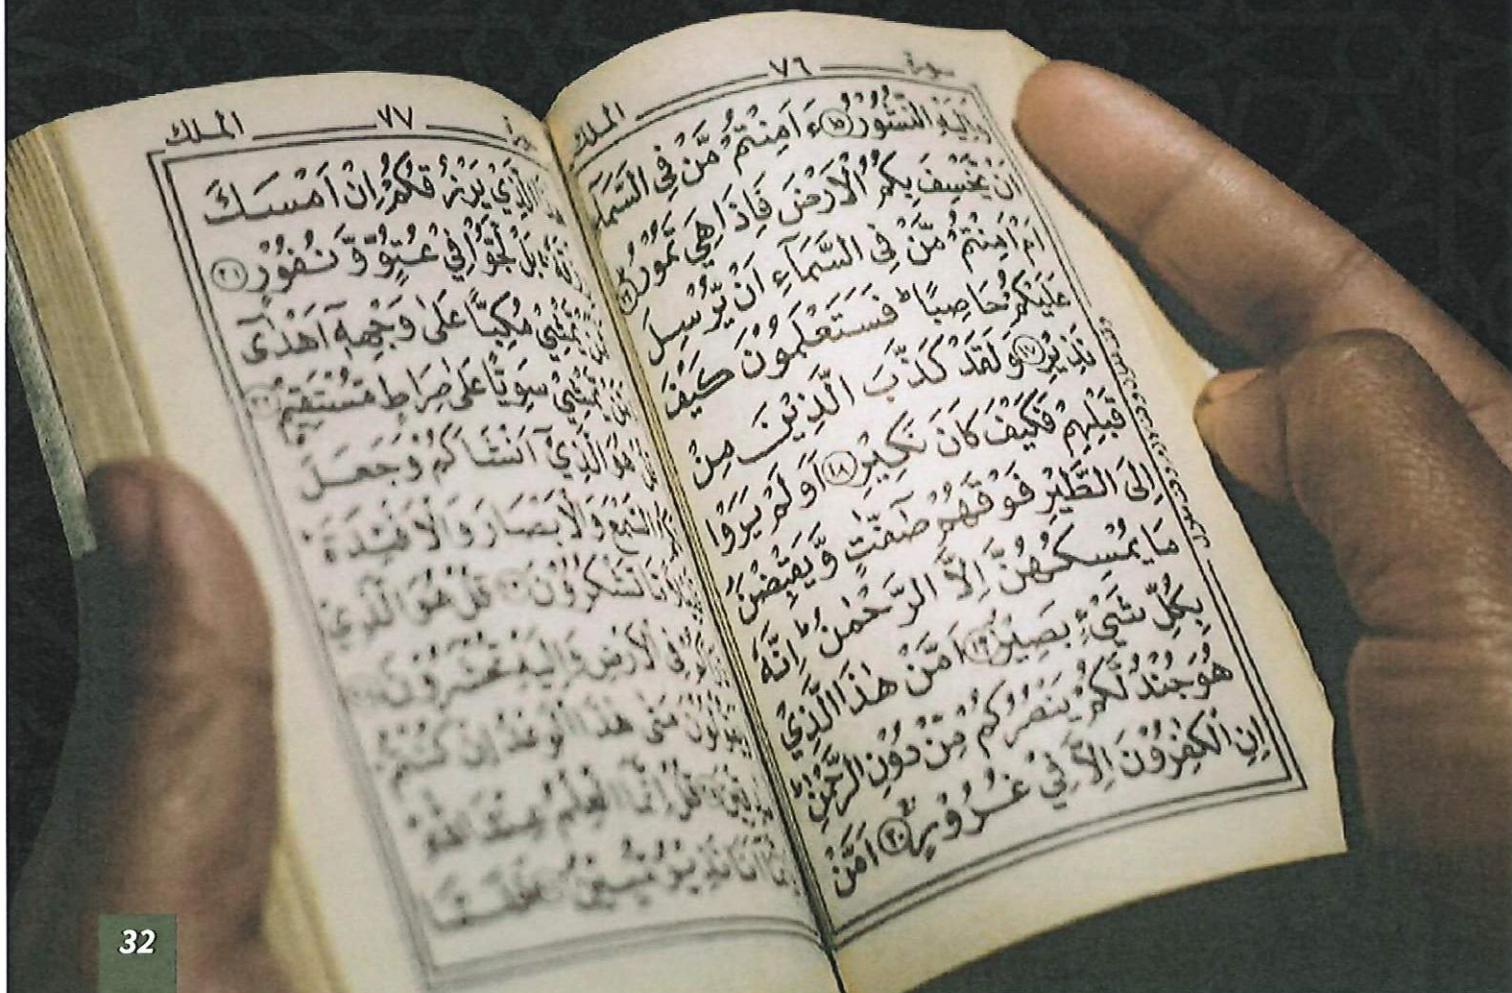 سورة ٧٦ الملك
وَاِلَيْهِ النُّشُوْرُ ﴿١٥﴾ ءَاَمِنْتُمْ مَّنْ فِي السَّمَآءِ
اَنْ يَّخْسِفَ بِكُمُ الْاَرْضَ فَاِذَا هِيَ تَمُوْرُ ﴿١٦﴾
اَمْ اَمِنْتُمْ مَّنْ فِي السَّمَآءِ اَنْ يُّرْسِلَ
عَلَيْكُمْ حَاصِبًا ؕ فَسَتَعْلَمُوْنَ كَيْفَ
نَذِيْرِ ﴿١٧﴾ وَلَقَدْ كَذَّبَ الَّذِيْنَ مِنْ
قَبْلِهِمْ فَكَيْفَ كَانَ نَكِيْرِ ﴿١٨﴾ اَوَلَمْ يَرَوْا
اِلَى الطَّيْرِ فَوْقَهُمْ صٰٓفّٰتٍ وَّيَقْبِضْنَ
مَا يُمْسِكُهُنَّ اِلَّا الرَّحْمٰنُ ؕ اِنَّهٗ
بِكُلِّ شَيْءٍ بَصِيْرٌ ﴿١٩﴾ اَمَّنْ هٰذَا الَّذِيْ
هُوَ جُنْدٌ لَّكُمْ يَنْصُرُكُمْ مِّنْ دُوْنِ الرَّحْمٰنِ ؕ
اِنِ الْكٰفِرُوْنَ اِلَّا فِيْ غُرُوْرٍ ﴿٢٠﴾ اَمَّنْ
سورة ٧٧ الملك
هٰذَا الَّذِيْ يَرْزُقُكُمْ اِنْ اَمْسَكَ
رِزْقَهٗ ۚ بَلْ لَّجُّوْا فِيْ عُتُوٍّ وَّنُفُوْرٍ ﴿٢١﴾
يَّمْشِيْ مُكِبًّا عَلٰى وَجْهِهٖٓ اَهْدٰٓى
يَّمْشِيْ سَوِيًّا عَلٰى صِرَاطٍ مُّسْتَقِيْمٍ ﴿٢٢﴾
قُلْ هُوَ الَّذِيْٓ اَنْشَاَكُمْ وَجَعَلَ
لَكُمُ السَّمْعَ وَالْاَبْصَارَ وَالْاَفْئِدَةَ
مَّا تَشْكُرُوْنَ ﴿٢٣﴾ قُلْ هُوَ الَّذِيْ
فِي الْاَرْضِ وَاِلَيْهِ تُحْشَرُوْنَ
وَيَقُوْلُوْنَ مَتٰى هٰذَا الْوَعْدُ اِنْ كُنْتُمْ
قُلْ اِنَّمَا الْعِلْمُ عِنْدَ اللّٰهِ
اَنَا نَذِيْرٌ مُّبِيْنٌ فَلَمَّا
32